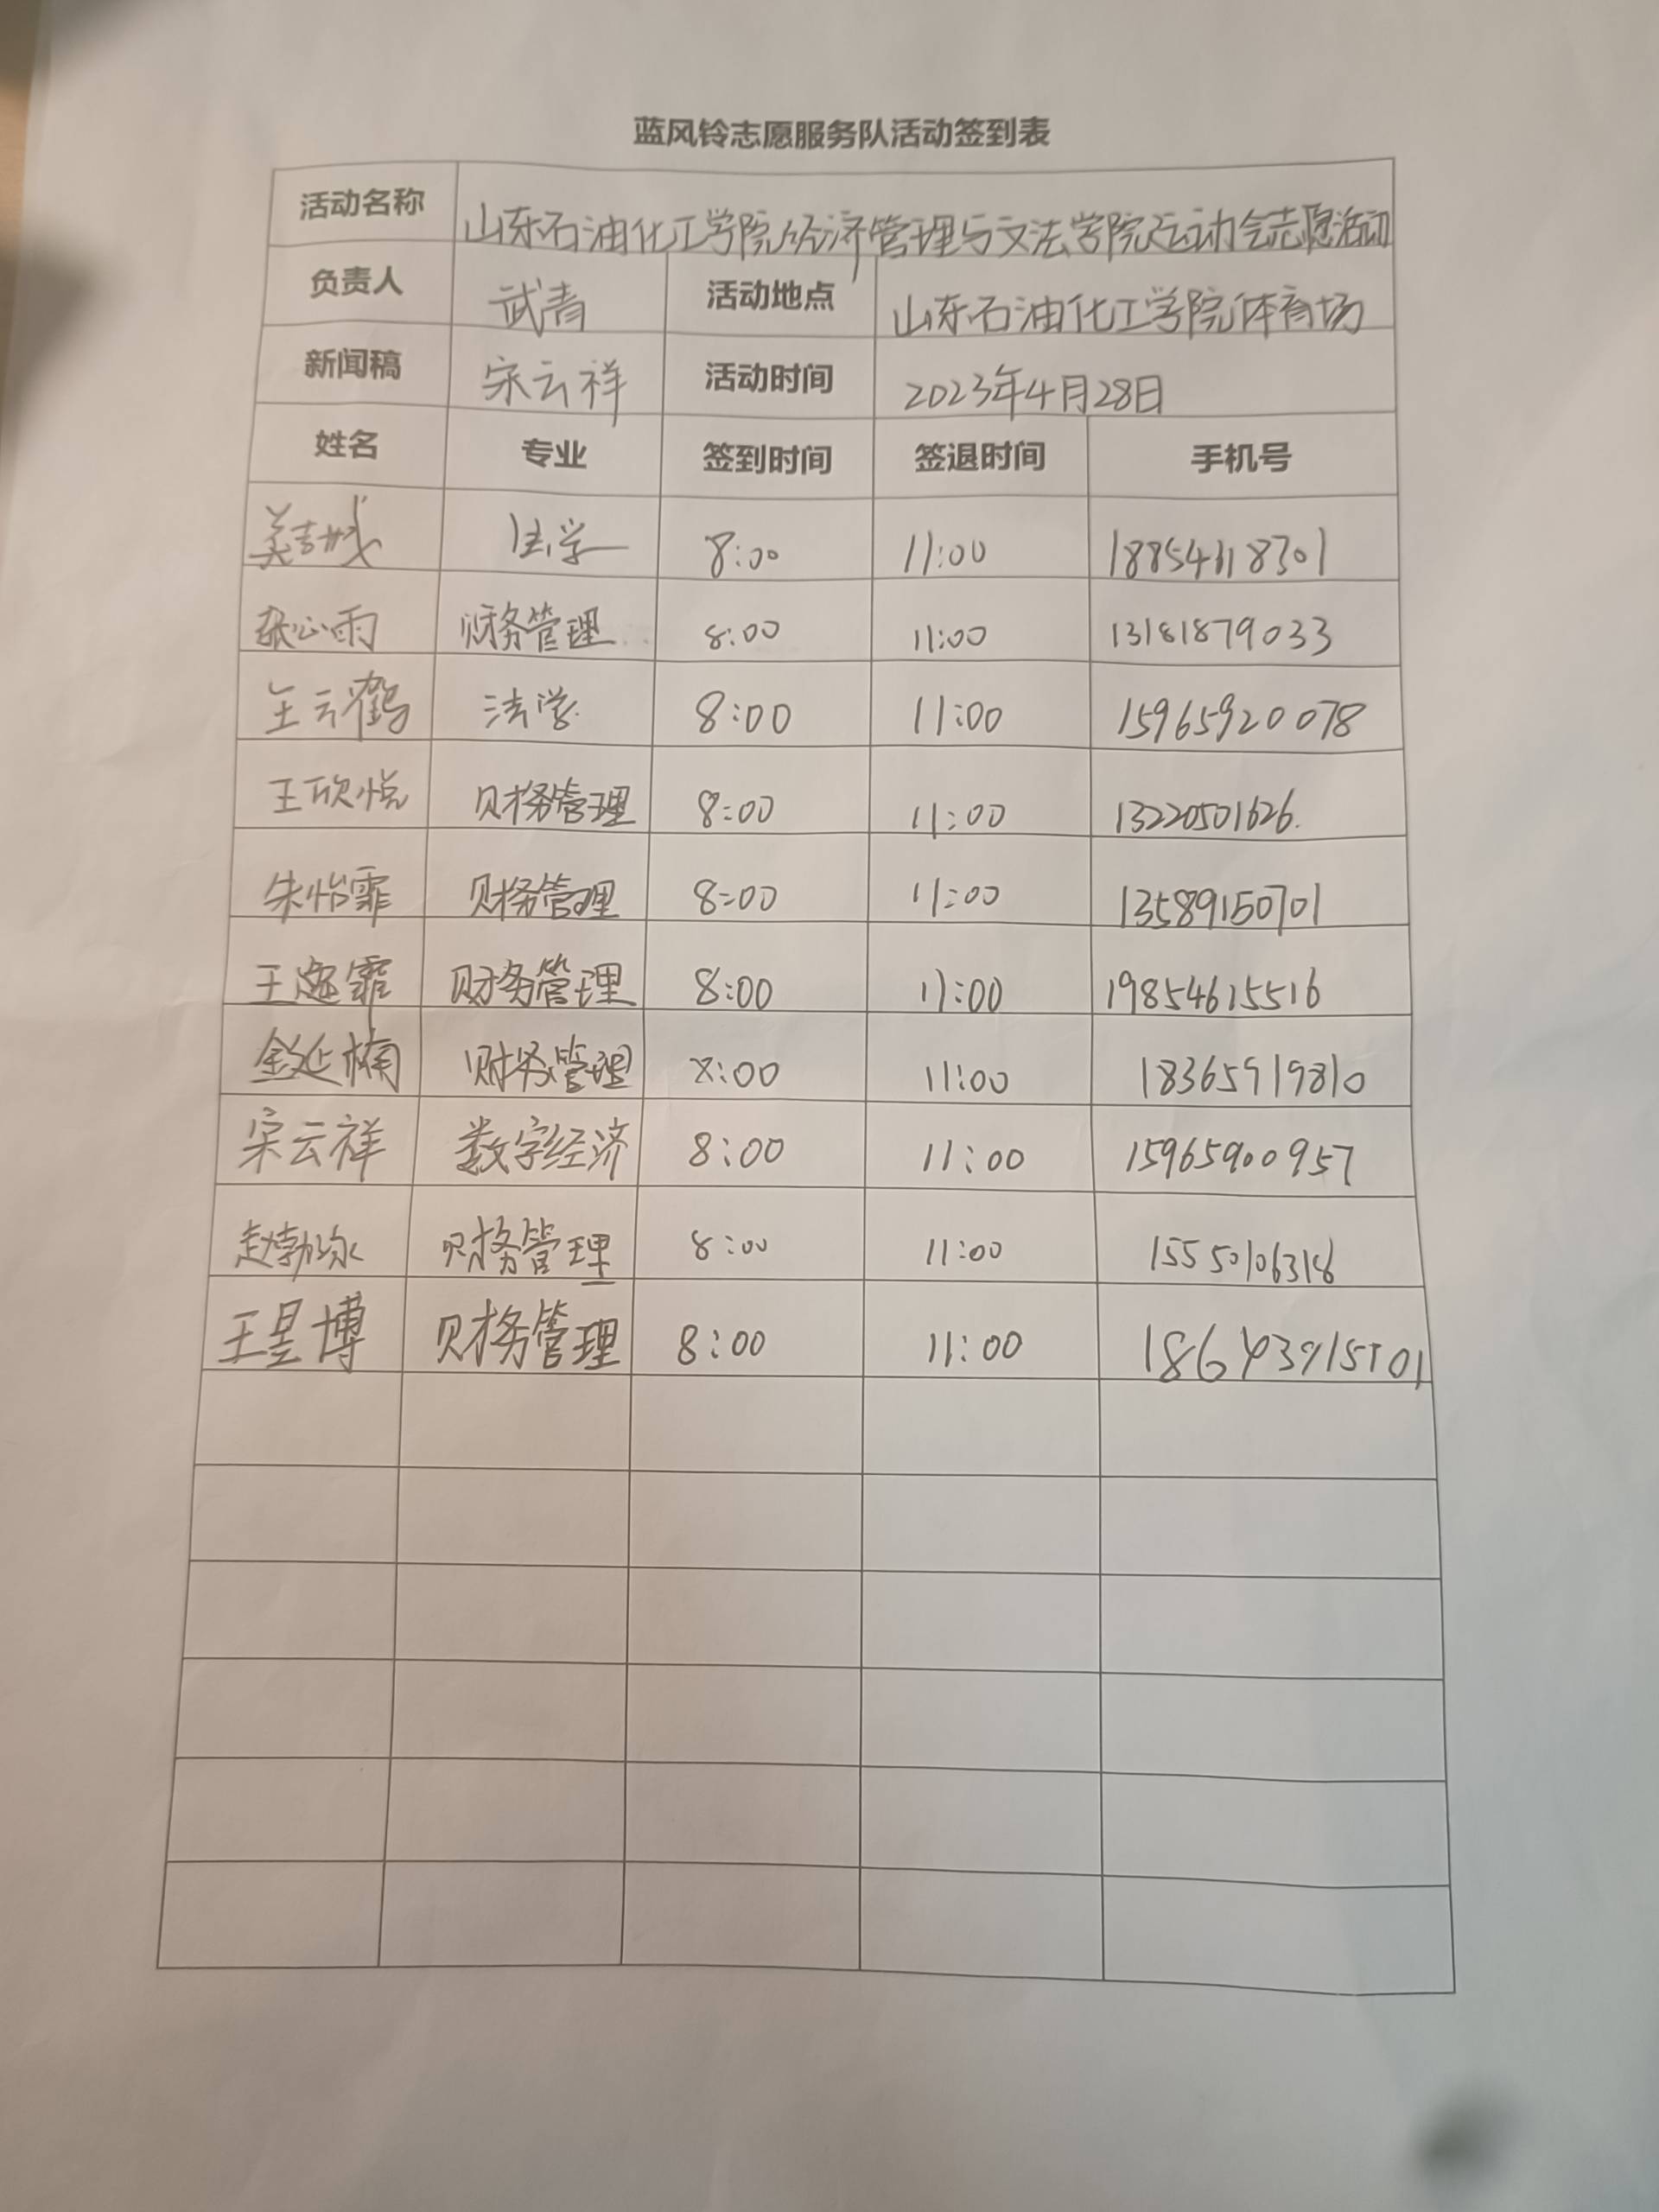 蓝风铃志愿服务队活动签到表
活动名称 山东石油化工学院经济管理与文法学院运动会志愿活动
负责人 武青 活动地点 山东石油化工学院体育场
新闻稿 宋云祥 活动时间 2023年4月28日
姓名 专业 签到时间 签退时间 手机号
法学 8:00 11:00
张心雨 财务管理 8:00 11:00 13181879033
王云鹤 法学 8:00 11:00 15965920078
王欣悦 财务管理 8:00 11:00 13220501626
朱怡霏 财务管理 8:00 11:00 13589150701
王逸霏 财务管理 8:00 11:00 19854615516
金延楠 财务管理 8:00 11:00 18365919810
宋云祥 数字经济 8:00 11:00 15965900957
财务管理 8:00 11:00 15550106318
王昱博 财务管理 8:00 11:00